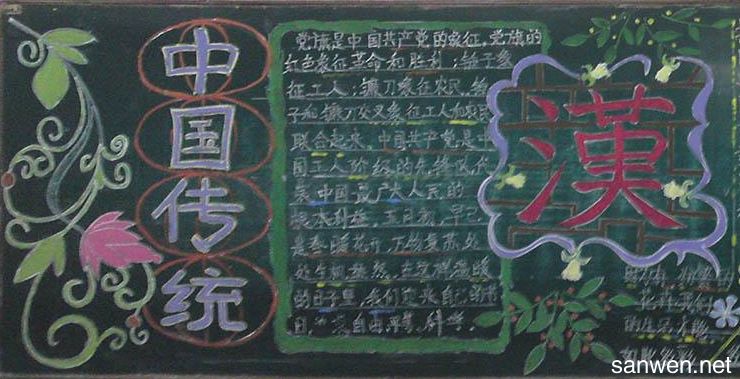 中国传统
党旗是中国共产党的象征,党旗的
红色象征革命和胜利;锤子象
征工人;镰刀象征农民,锤
子和镰刀交叉象征工人和农民
联合起来,中国共产党是中
国工人阶级的先锋队,代
表中国最广大人民的
根本利益,五月初,早已
是春暖花开,万物复苏,处
处生机盎然,在这样温暖
的日子里,我们迎来自己的节
日,自由、平等、科学。
漢
的生活
sanwen.net